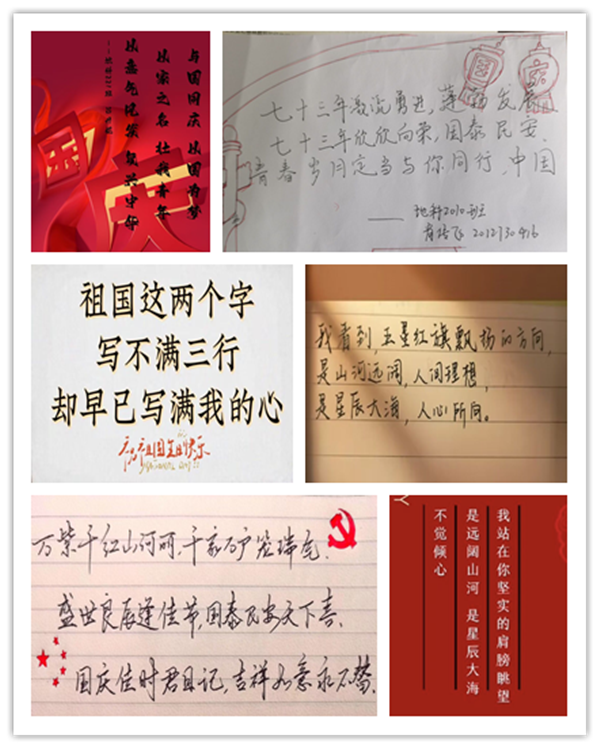 与国同庆 以国为梦
以家之名 壮我青年
以意气风发 复兴中华
国庆
国庆
七十三年激流勇进，蓬勃发展。
七十三年欣欣向荣，国泰民安。
青春岁月定当与你同行，中国
——地科2010班
2012730416
祖国这两个字
写不满三行
却早已写满我的心
我看到，五星红旗飘扬的方向，
是山河远阔，人间理想，
是星辰大海，人心所向。
万紫千红山河丽，千家万户笼瑞气.
盛世良辰逢佳节，国泰民安天下喜.
国庆佳时君且记，吉祥如意永不替.
Y
我站在你坚实的肩膀眺望
是远阔山河 是星辰大海
不觉倾心